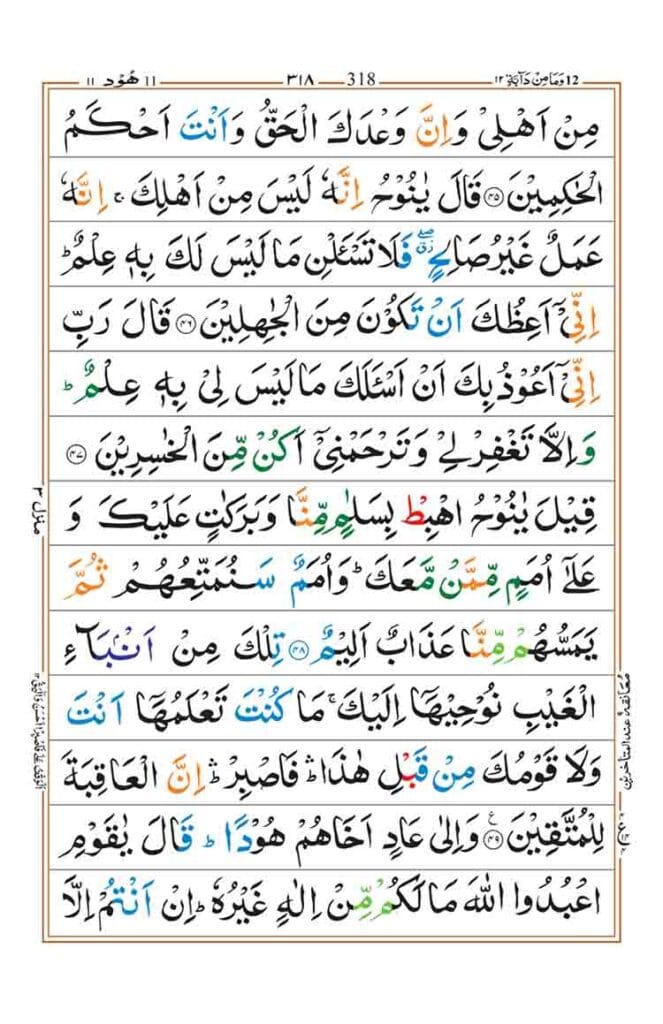 12 وَمَا مِنْ دَآبَّةٍ ١٢ 318 ٣١٨ 11 هُوْد ١١
مِنْ اَهْلِىْ وَاِنَّ وَعْدَكَ الْحَقُّ وَاَنْتَ اَحْكَمُ
الْحٰكِمِيْنَ ۝۴۵ قَالَ يٰنُوْحُ اِنَّهٗ لَيْسَ مِنْ اَهْلِكَ ۚ اِنَّهٗ
عَمَلٌ غَيْرُ صَالِحٍ ۖ زق فَلَا تَسْـَٔلْنِ مَا لَيْسَ لَكَ بِهٖ عِلْمٌ ؕ
اِنِّىْۤ اَعِظُكَ اَنْ تَكُوْنَ مِنَ الْجٰهِلِيْنَ ۝۴۶ قَالَ رَبِّ
اِنِّىْۤ اَعُوْذُ بِكَ اَنْ اَسْـَٔلَكَ مَا لَيْسَ لِىْ بِهٖ عِلْمٌ ؕ
وَاِلَّا تَغْفِرْ لِىْ وَتَرْحَمْنِىْۤ اَكُنْ مِّنَ الْخٰسِرِيْنَ ۝۴۷
قِيْلَ يٰنُوْحُ اهْبِطْ بِسَلٰمٍ مِّنَّا وَبَرَكٰتٍ عَلَيْكَ وَ
عَلٰٓى اُمَمٍ مِّمَّنْ مَّعَكَ ؕ وَاُمَمٌ سَنُمَتِّعُهُمْ ثُمَّ
يَمَسُّهُمْ مِّنَّا عَذَابٌ اَلِيْمٌ ۝۴۸ تِلْكَ مِنْ اَنْۢبَآءِ
الْغَيْبِ نُوْحِيْهَاۤ اِلَيْكَ ۚ مَا كُنْتَ تَعْلَمُهَاۤ اَنْتَ
وَلَا قَوْمُكَ مِنْ قَبْلِ هٰذَا ۛؕ فَاصْبِرْ ۛؕ اِنَّ الْعَاقِبَةَ
لِلْمُتَّقِيْنَ ۝۴۹ ع وَاِلٰى عَادٍ اَخَاهُمْ هُوْدًا ؕ قَالَ يٰقَوْمِ
اعْبُدُوا اللّٰهَ مَا لَكُمْ مِّنْ اِلٰهٍ غَيْرُهٗ ؕ اِنْ اَنْتُمْ اِلَّا
منزل ٣
معانقة عند المتاخرين
ع